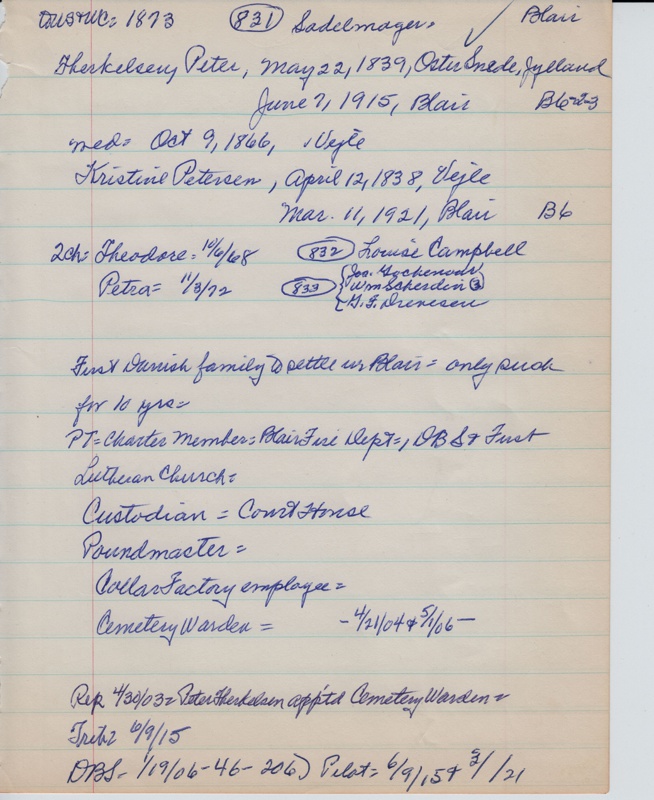 DUS+WC= 1873 831 Sadelmager= Blair
Therkelsen, Peter, May 22, 1839, Oster Snede, Jylland
June 7, 1915, Blair B6-2-3
med= Oct 9, 1866, Vejle
Kristine Petersen, April 12, 1838, Vejle
Mar. 11, 1921, Blair B6
2ch= Theodore= 10/6/68 832 Louise Campbell
Petra= 11/3/72 833 Jos.
Wm Scherdin 3
G.F. Drevesen
First Danish family to settle in Blair= only such
for 10 yrs=
PT= Charter Member= Blair Fire Dept=, DBS + First
Lutheran Church=
Custodian = Court House
Poundmaster=
Collar Factory employee=
Cemetery Warden = -4/21/04 + 5/1/06-
Rep 4/30/03= Peter Therkelsen app'td Cemetery Warden=
Trib= 6/9/15
DBS- 1/19/06-46-206) Pilot= 6/9/15 + /21